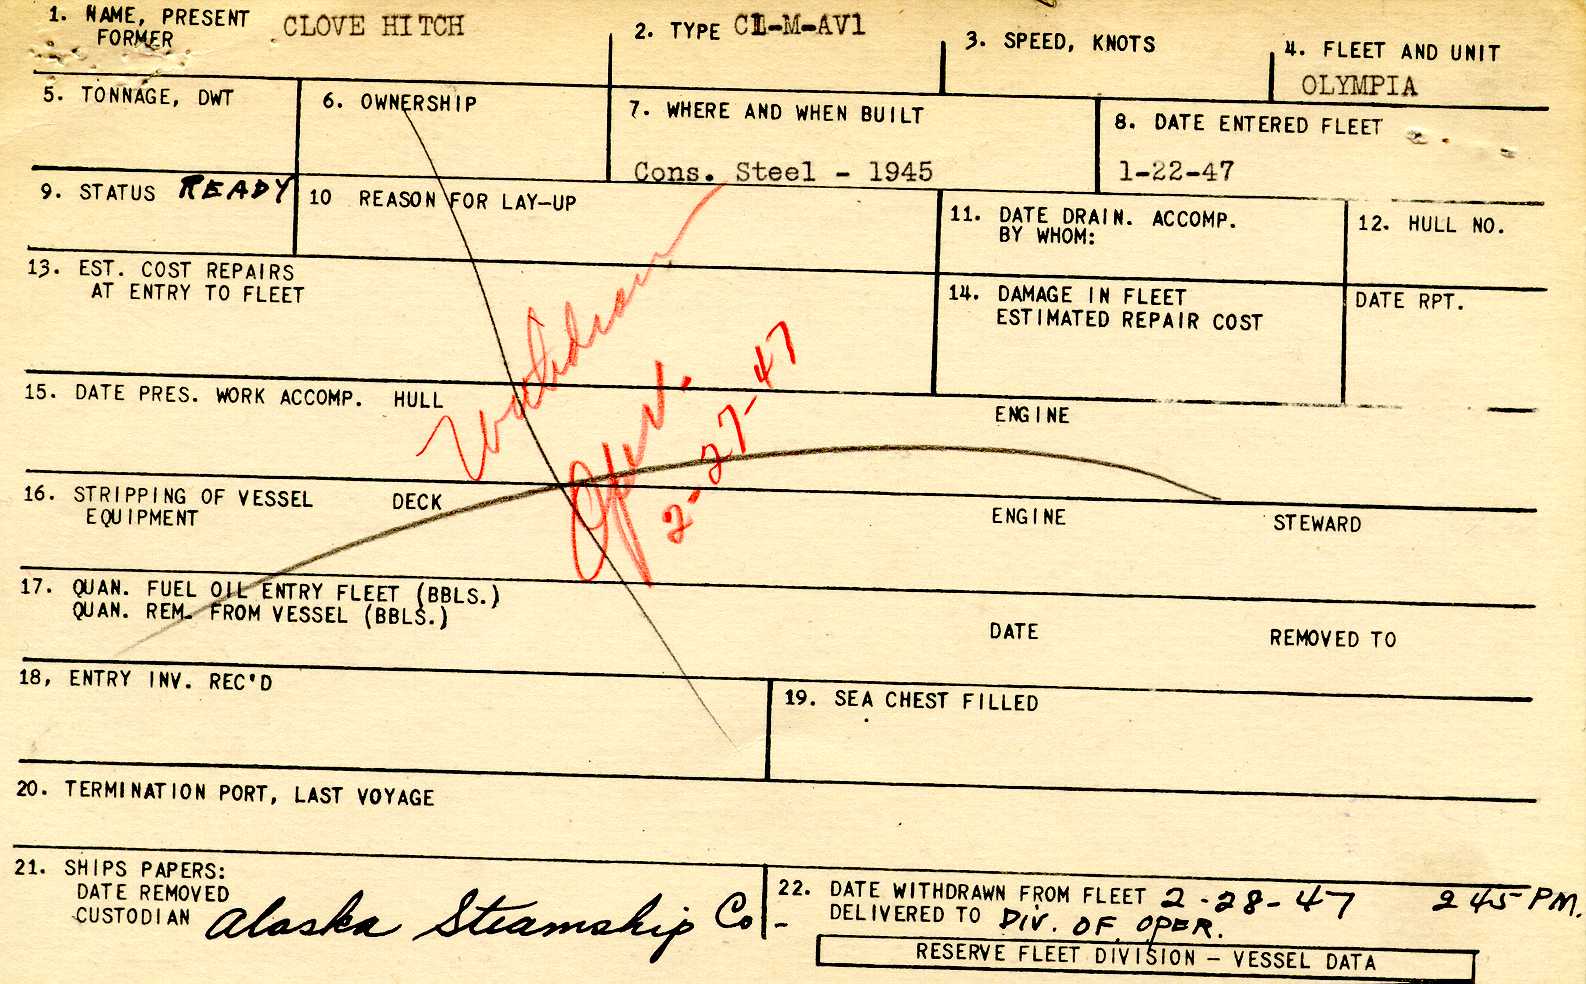 1. NAME, PRESENT CLOVE HITCH
FORMER
2. TYPE C1-M-AV1
3. SPEED, KNOTS
4. FLEET AND UNIT
OLYMPIA
5. TONNAGE, DWT
6. OWNERSHIP
7. WHERE AND WHEN BUILT
Cons. Steel - 1945
8. DATE ENTERED FLEET
1-22-47
9. STATUS READY
10 REASON FOR LAY-UP
11. DATE DRAIN. ACCOMP.
BY WHOM:
12. HULL NO.
13. EST. COST REPAIRS
AT ENTRY TO FLEET
14. DAMAGE IN FLEET
ESTIMATED REPAIR COST
DATE RPT.
Withdrawn
Oper.
2-27-47
15. DATE PRES. WORK ACCOMP. HULL ENGINE
16. STRIPPING OF VESSEL DECK ENGINE STEWARD
EQUIPMENT
17. QUAN. FUEL OIL ENTRY FLEET (BBLS.)
QUAN. REM. FROM VESSEL (BBLS.) DATE REMOVED TO
18, ENTRY INV. REC'D
19. SEA CHEST FILLED
20. TERMINATION PORT, LAST VOYAGE
21. SHIPS PAPERS:
DATE REMOVED
CUSTODIAN Alaska Steamship Co
22. DATE WITHDRAWN FROM FLEET 2-28-47 245 PM.
DELIVERED TO DIV. OF OPER.
RESERVE FLEET DIVISION - VESSEL DATA